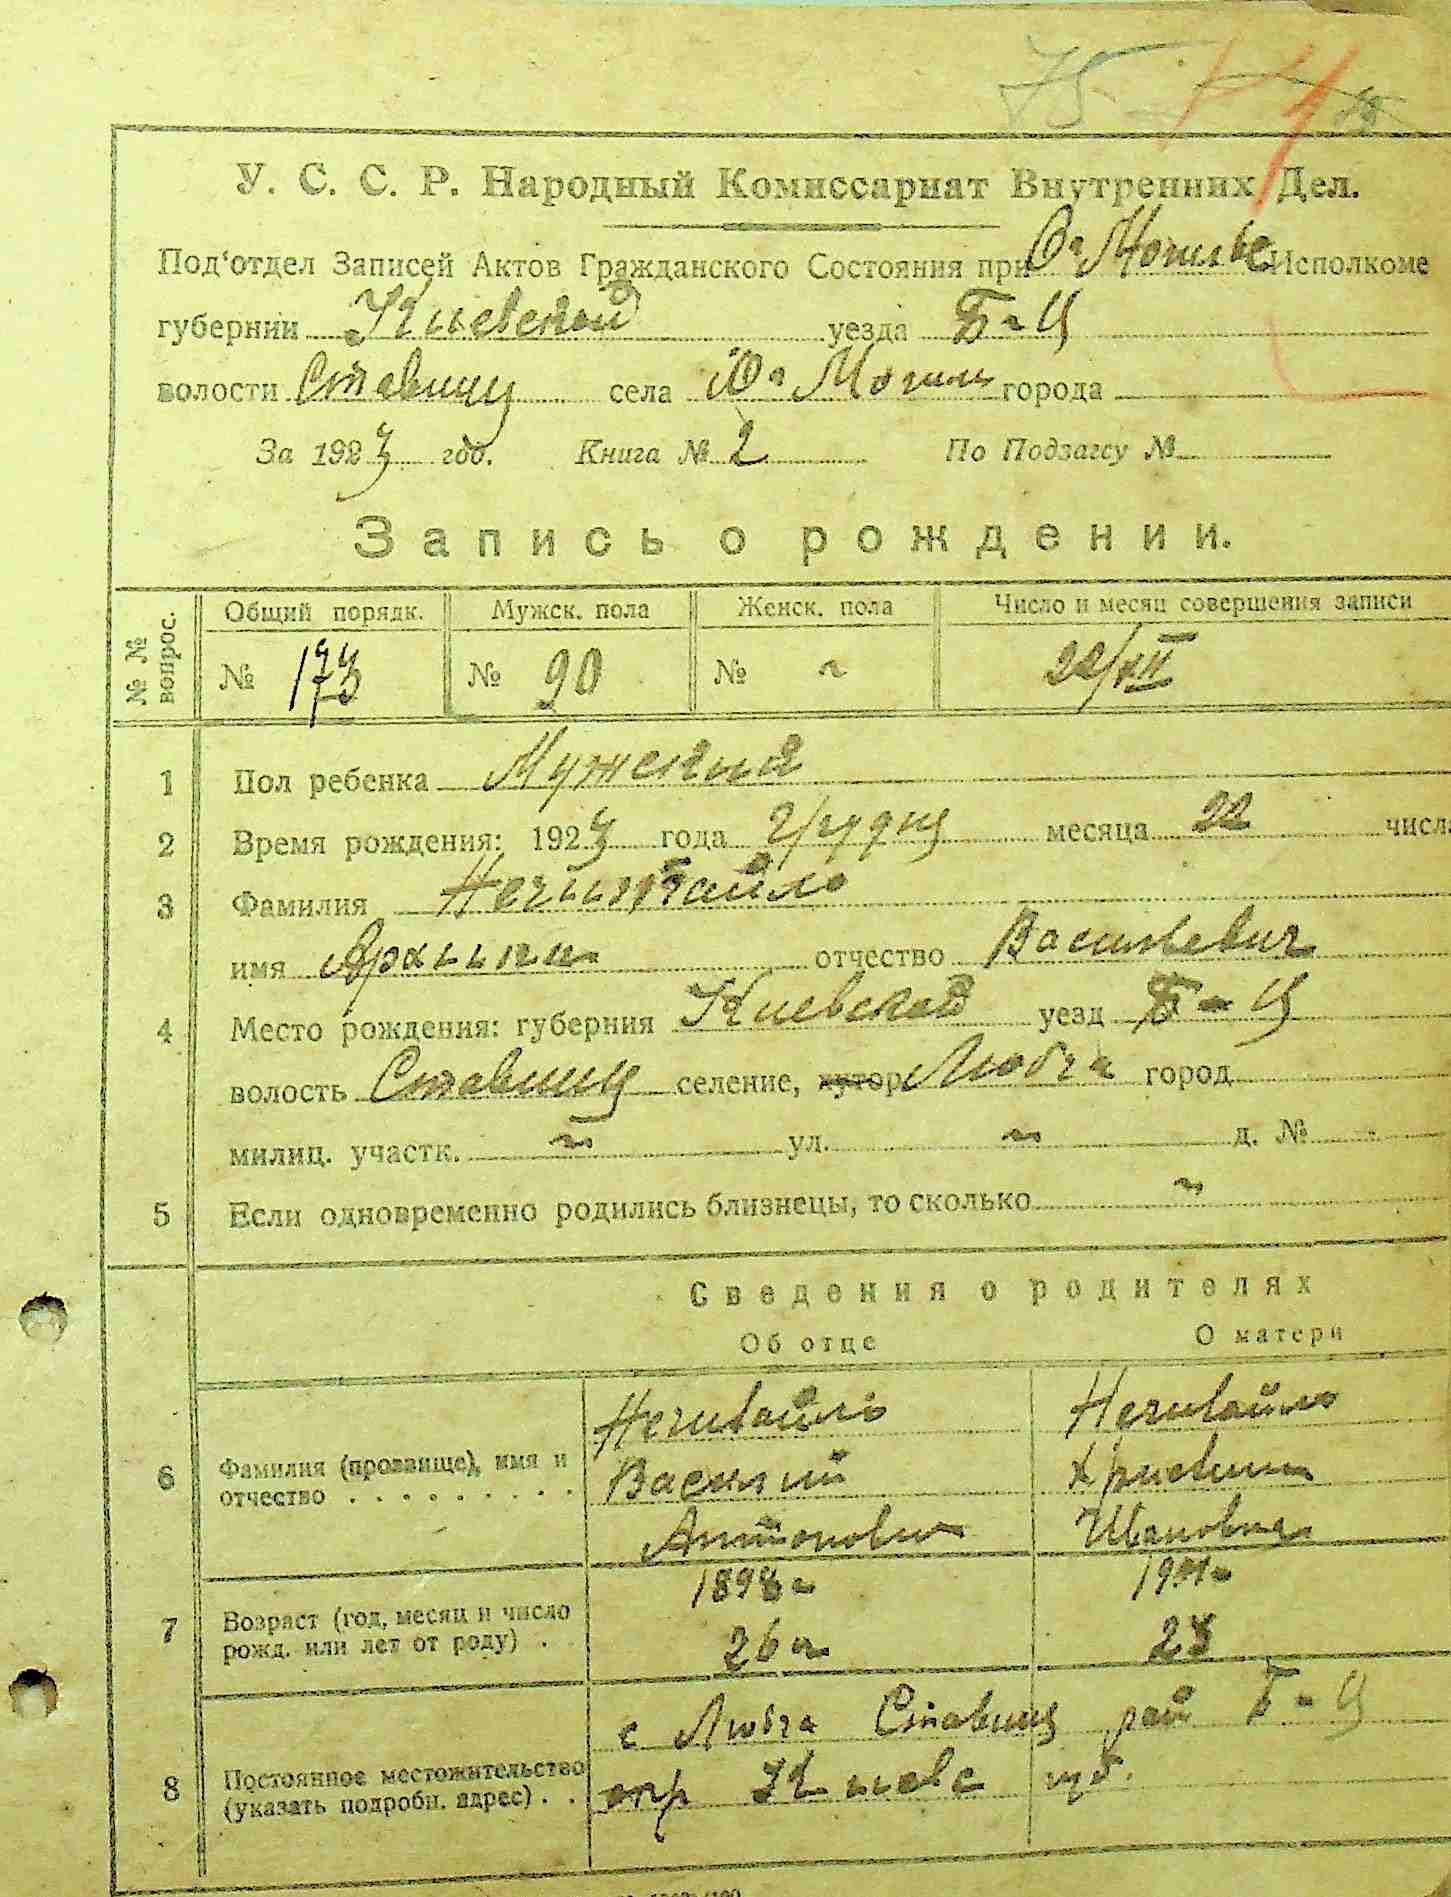 75
У. С. С. Р. Народный Комиссариат Внутренних Дел.
Под‘отдел Записей Актов Гражданского Состояния при Исполкоме
губернии Киевской уезда Б-Ц
волости Ставищ села города
За 1923 год. Книга № 2 По Подзагсу №
Запись о рождении.
№ № вопрос. Общий порядк. Мужск. пола Женск. пола Число и месяц совершения записи
№ 173 № 90 № ~ 22/XII
1 Пол ребенка Мужский
2 Время рождения: 1923 года Грудня месяца 22 числа
3 Фамилия Нечипайло
имя отчество Васильевич
4 Место рождения: губерния Киевской уезд Б-Ц
волость Ставищ селение, хутор Любча город
милиц. участк. ~ ул. ~ д. № -
5 Если одновременно родились близнецы, то сколько ~
Сведения о родителях
Об отце О матери
Нечивайло Нечивайло
6 Фамилия (прозвище), имя и Василий Христина
отчество . . . . . . . . . Антонович
7 Возраст (год, месяц и число 1898
рожд. или лет от роду) . 26 23
с Любча Ставищ рай Б-Ц
8 Постоянное местожительство
(указать подробн. адрес) . . окр Киевс губ.